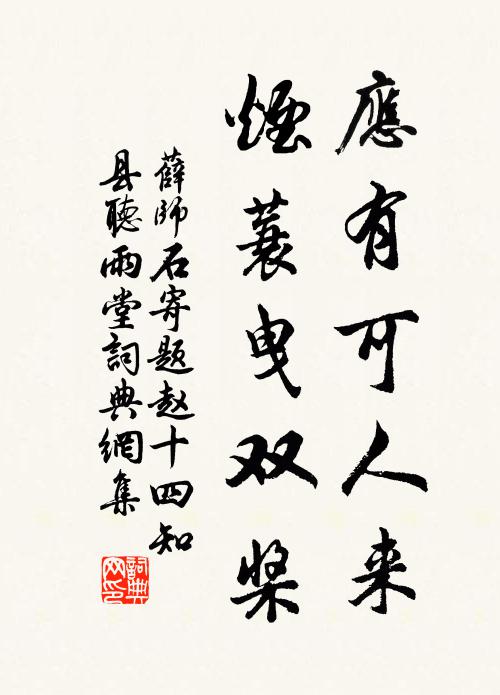 應有可人来
煙蓑曳双桨
薛師石寄題赵十四知
县聽雨堂詞典網集
詞典网印